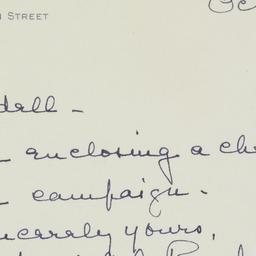 STREET
dell -
enclosing a che
campaign.
ncerely yours,